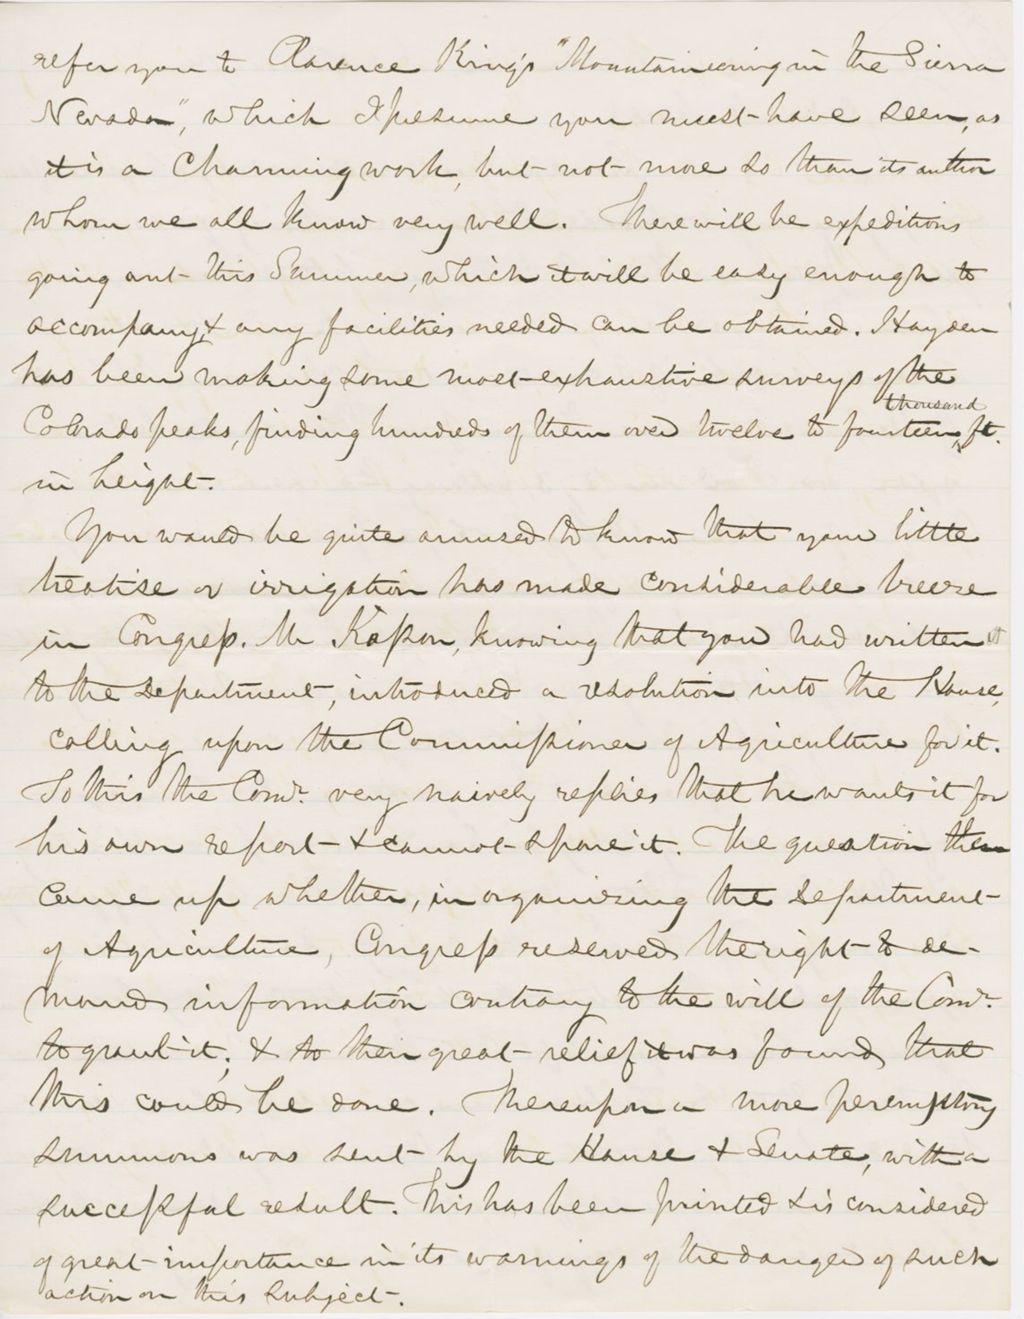 refer you to Clarence King's "Mountaineering in the Sierra
Nevada", which I presume you must have seen, as
it is a charming work, but not more so than its author
whom we all know very well. There will be expeditions
going out this Summer, which it will be easy enough to
accompany, & any facilities needed can be obtained. Hayden
has been making some most exhaustive surveys of the
Colorado peaks, finding hundreds of them over twelve to fourteen thousand ft.
in height.
You would be quite amused to know that your little
treatise on irrigation has made considerable breeze
in Congress. Mr Kasson, knowing that you had written it
to the Department, introduced a resolution into the House,
calling upon the Commissioner of Agriculture for it.
To this the Comr. very naively replies that he wants it for
his own report & cannot spare it. The question then
came up whether, in organizing the Department
of Agriculture, Congress reserved the right to de-
mand information contrary to the will of the Comr.
to grant it; & to their great relief it was found that
this could be done. Thereupon a more peremptory
summons was sent by the House & Senate, with a
successful result. This has been printed & is considered
of great importance in its warnings of the danger of such
action on this subject.